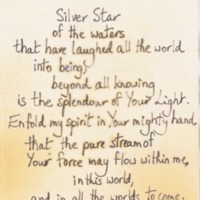 Silver Star
of the waters
that have laughed all the world
into being,
beyond all knowing
is the splendour of Your Light.
Enfold my spirit in Your mighty hand
that the pure stream of
Your force may flow within me,
in this world,
and in all the worlds to come.